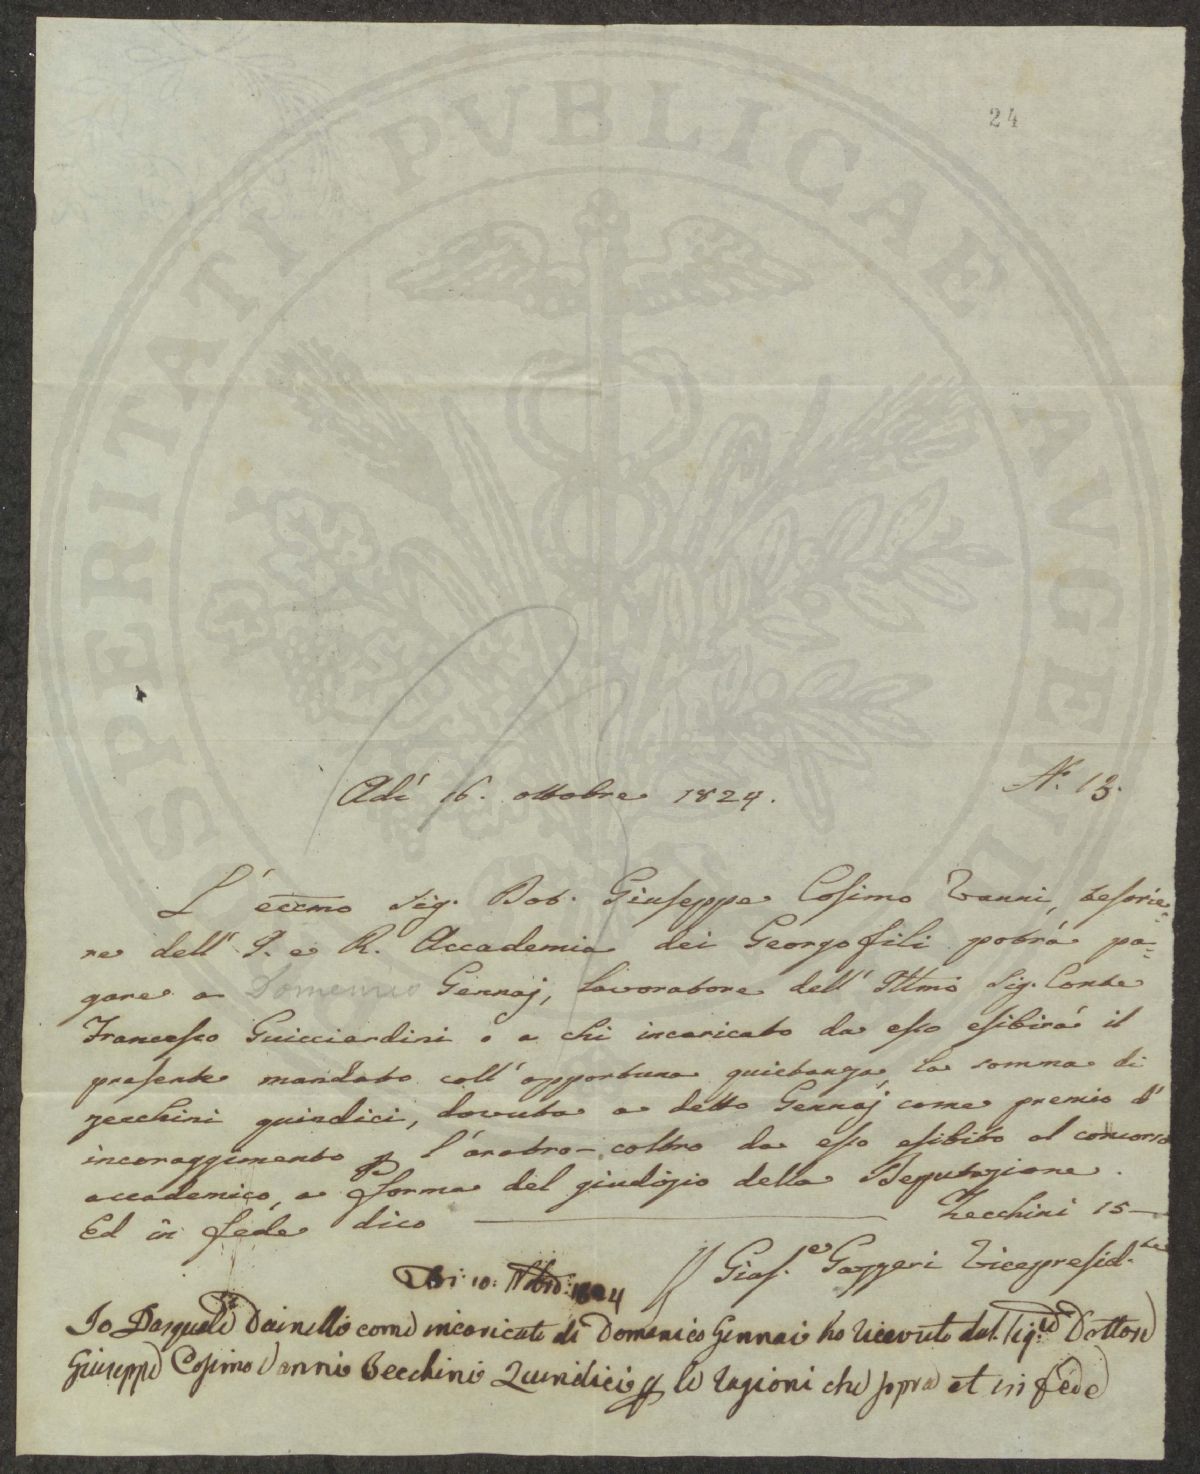 PROSPERITATI PVBLICAE AVGENDAE
24
Adì 16. ottobre 1824.
N.° 13.
L' eccmo Sig. Dot. Giuseppe Cosimo Vanni, tesorie=
re dell' I. e R. Accademia dei Georgofili potrà pa=
gare a Domenico Gennaj, lavoratore dell' Illmo Sig. Conte
Francesco Guicciardini o a chi incaricato da esso esibirà il
presente mandato coll' opportuna quietanza, la somma di
zecchini quindici, dovuta a detto Gennaj come premio d'
incoraggimento p l' aratro-coltro da esso esibito al concorso
accademico, a forma del giudizio della Deputazione.
Ed in fede dico ——— Zecchini 15—
Gius.e Gazzeri Vicepresid.te
10: 1824
Io Pasquale Dainelli come incaricato di Domenico Gennai ho ricevuto dal Sig.re Dottore
Giuseppe Cosimo Vanni Zecchini Quindici p le ragioni che sopra et in fede